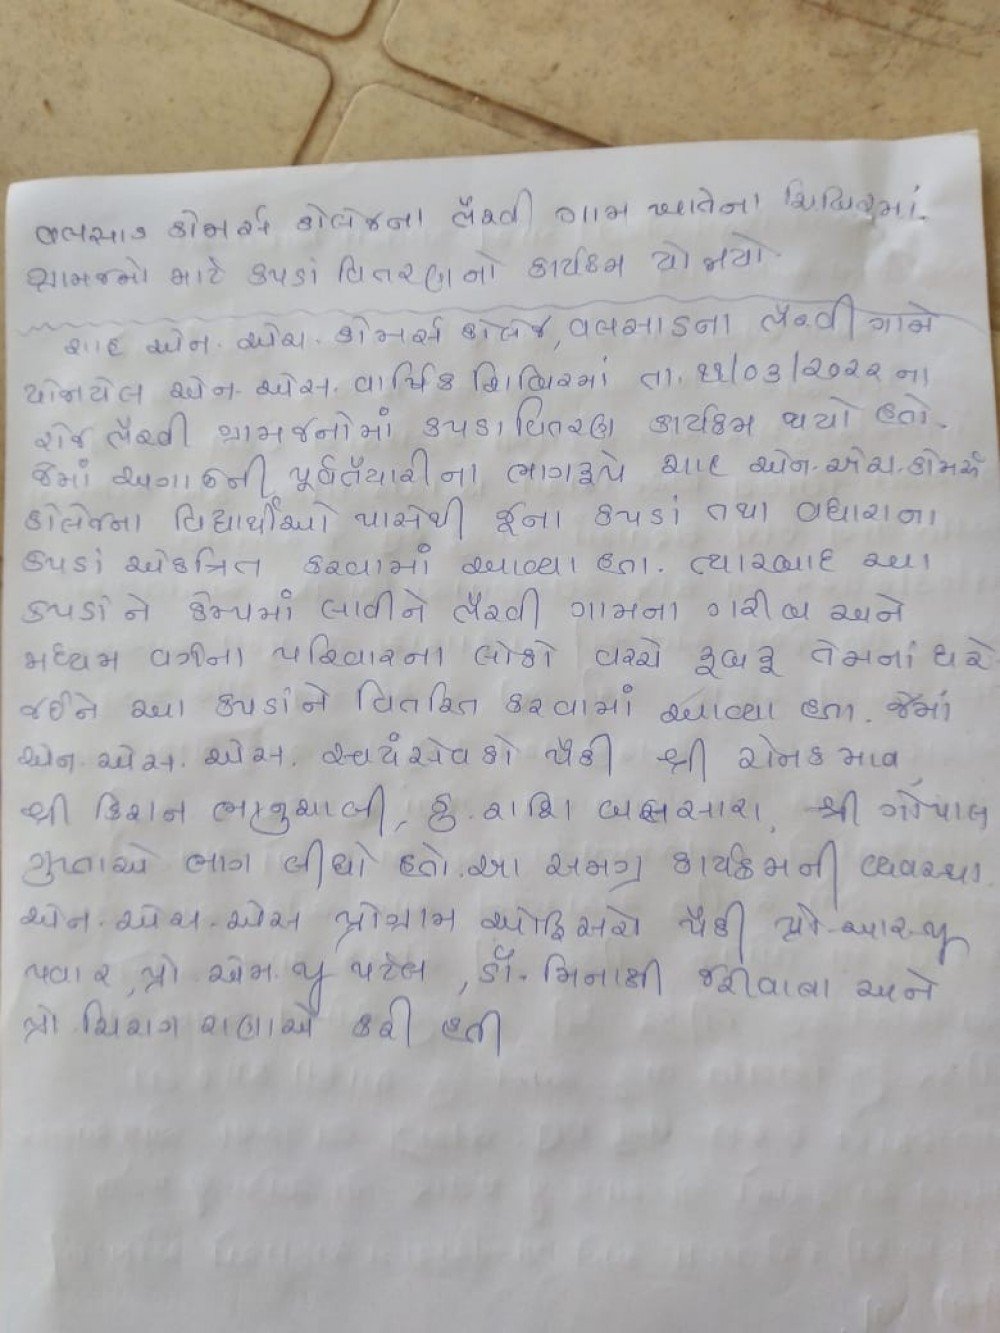 વલસાડ કોમર્સ કોલેજના લૈરવી ગામ ખાતેના શિબિરમાં
ગ્રામજનો માટે કપડાં વિતરણનો કાર્યક્રમ યોજાયો.
શાહ એન. એચ. કોમર્સ કોલેજ, વલસાડના લૈરવી ગામે
યોજાયેલ એન. એસ. વાર્ષિક શિબિરમાં તા. ૧૧/૦૩/૨૦૨૨ ના
રોજ લૈરવી ગ્રામજનોમાં કપડા વિતરણ કાર્યક્રમ થયો હતો.
જેમાં અગાઉની પૂર્વતૈયારીના ભાગરૂપે શાહ એન. એચ. કોમર્સ
કોલેજના વિદ્યાર્થીઓ પાસેથી જૂના કપડાં તથા વધારાના
કપડાં એકત્રિત કરવામાં આવ્યા હતા. ત્યારબાદ આ
કપડાં ને કેમ્પમાં લાવીને લૈરવી ગામના ગરીબ અને
મધ્યમ વર્ગના પરિવારના લોકો વચ્ચે રૂબરૂ તેમનાં ઘરે
જઈને આ કપડાંને વિતરિત કરવામાં આવ્યા હતા. જેમાં
એન. એસ. એસ. સ્વયંસેવકો પૈકી શ્રી રોનક ભાવ
શ્રી કિશન ભાનુશાલી, કુ. રાશિ બક્ષસારા, શ્રી ગોપાલ
ગુપ્તાએ ભાગ લીધો હતો. આ સમગ્ર કાર્યક્રમની વ્યવસ્થા
એન. એસ. એસ પ્રોગ્રામ ઓફિસરો પૈકી પ્રો. આર. યૂ
પવાર, પ્રો. એમ. યૂ પટેલ, ડૉ. મિનાક્ષી જરીવાલા અને
પ્રો. ચિરાગ રાણાએ કરી હતી